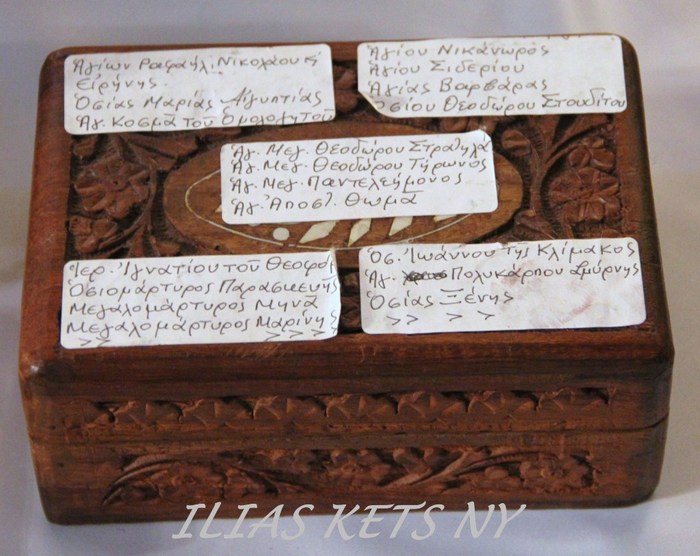 Ἁγίων Ραφαήλ, Νικολάου κ'
Εἰρήνης.
Ὁσίας Μαρίας Αἰγυπτίας
Ἁγ. Κοσμᾶ τοῦ Ὁμολογητοῦ
Ἁγίου Νικάνωρος
Ἁγίου Σιδερίου
Ἁγίας Βαρβάρας
Ὁσίου Θεοδώρου Στουδίτου
Ἁγ. Μεγ. Θεοδώρου Στρατηλά
Ἁγ. Μεγ. Θεοδώρου Τύρωνος
Ἁγ. Μεγ. Παντελεήμονος
Ἁγ. Ἀποστ. Θωμᾶ
Ἱερ. Ἰγνατίου τοῦ Θεοφόρ
Ὁσιομάρτυρος Παρασκευῆς
Μεγαλομάρτυρος Μηνᾶ
Μεγαλομάρτυρος Μαρίνης
>> > > > >
Ὁσ. Ἰωάννου τῆς Κλίμακος
Ἁγ. Πολυκάρπου Σμύρνης
Ὁσίας Ξένης
>> > >
ILIAS KETS NY